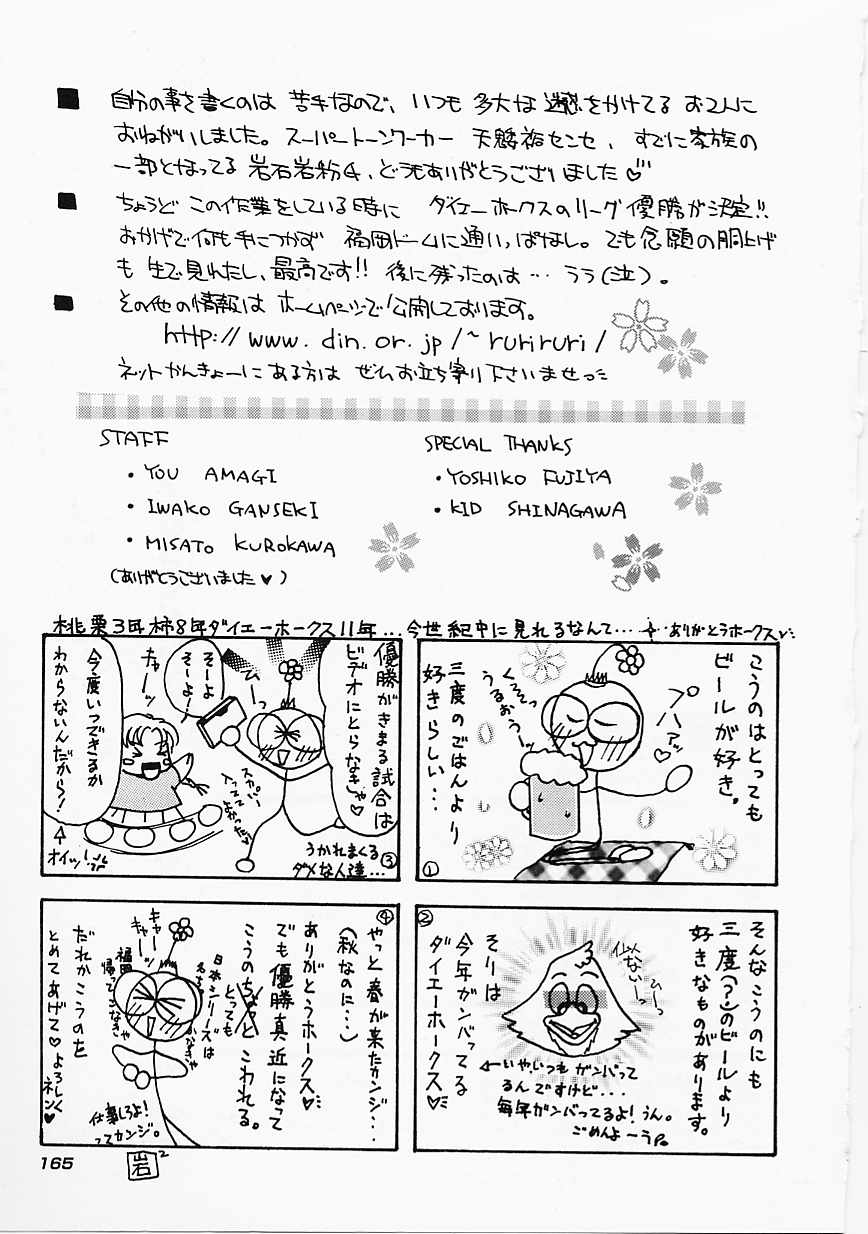 自分の事を書くのは 苦手なので、いつも 多大な 迷惑をかけてる お2人に
おねがいしました。スーパートーンワーカー 天麟裕センセ、すでに家族の
一部となってる 岩石岩粉4、どうもありがとうございました♡
ちょうど この作業をしている時に ダイエーホークスのリーグ優勝が決定!!
おかげで何も手につかず 福岡ドームに通いっぱなし。でも念願の胴上げ
も 生で見れたし、最高です!! 後に残ったのは… うう(泣)。
その他の情報は ホームページで公開しております。
http://www.din.or.jp/~ruriruri/
ネットかんきょーにある方は ぜひお立ち寄り下さいませっ
STAFF
・YOU AMAGI
・IWAKO GANSEKI
・MISATO KUROKAWA
(ありがとうございました♥)
SPECIAL THANKS
・YOSHIKO FUJIYA
・KID SHINAGAWA
桃栗3年柿8年ダイエーホークス11年…今世紀中に見れるなんて…ありがとうホークス♡
こうのはとっても
ビールが好き。
プハァッ♡
くそそっ
うるおうーッ
三度のごはんより
好きらしい…
①
そんなこうのにも
三度(?)のビールより
好きなものがあります。
似てないーっ
ひーっ
そりは
今年ガンバってる
ダイエーホークス♡
←いや、いつもガンバって
るんですけど...
毎年ガンバってるよ!うん。
ごめんよーう
②
優勝がきまる試合は
ビデオにとらなきゃ♡
ひーっ
そーよ
そーよ!
キャーッ
今度いつできるか
わからないんだから!
スカパー!
入ってて
よかった♡
オイッ!
うかれまくる
ダメな人達…
③
やっと春が来たカンジ…
(秋なのに…)
ありがとうホークス♡
でも優勝真近になって
こうのちょっと
とっても
こわれる。
日本シリーズは
キャー
キャーッ
福岡
帰ってこなきゃ
だれかこうのを
とめてあげて♡よろしく
ネン♡
仕事しろよ!
ってカンジ。
④
165
岩2